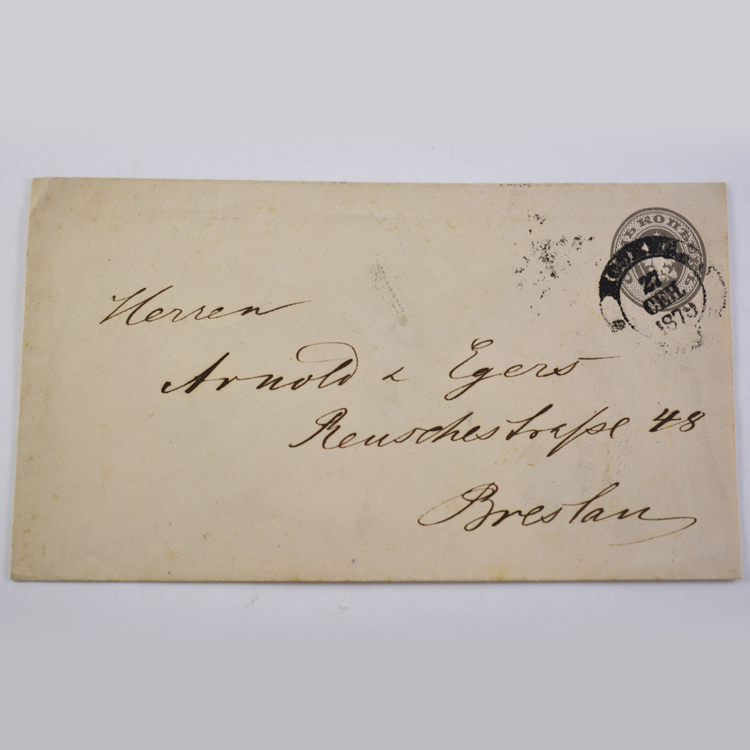 КОП
27
СЕН.
1879
Herren
Arnold & Egers
Reuschestraße 48
Breslau